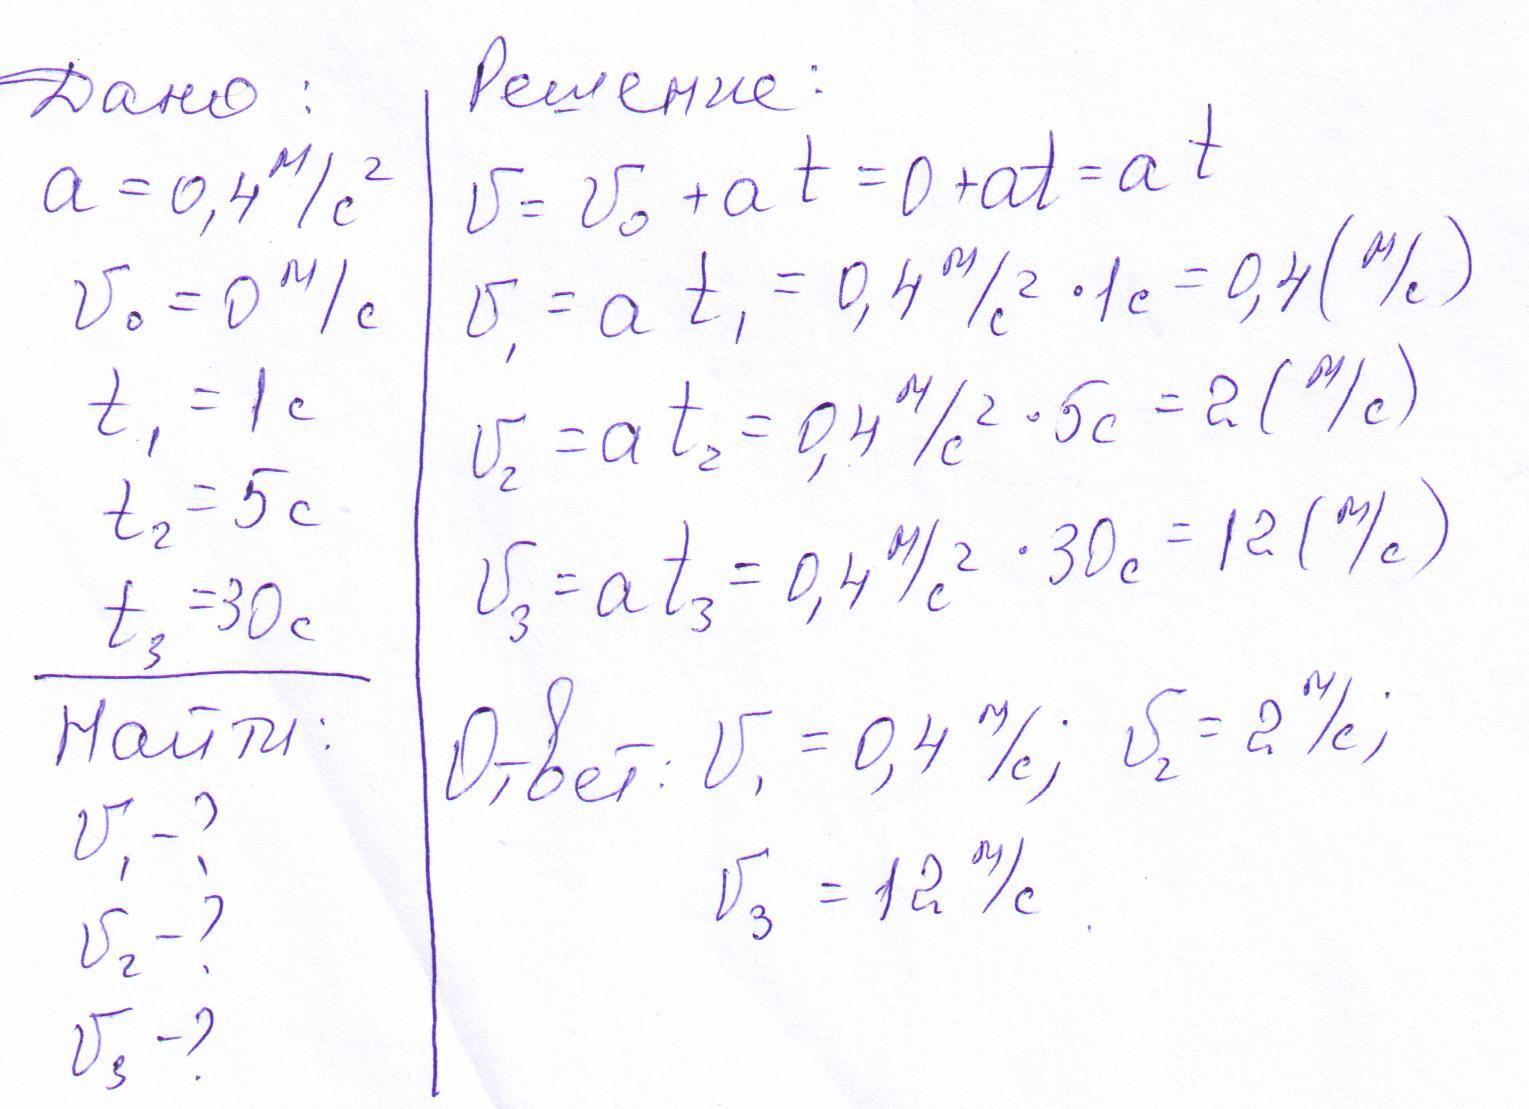 Дано:
a = 0,4 м/с²
v₀ = 0 м/с
t₁ = 1с
t₂ = 5с
t₃ = 30с
Найти:
v₁ - ?
v₂ - ?
v₃ - ?
Решение:
v = v₀ + a t = 0 + at = a t
v₁ = a t₁ = 0,4 м/с² · 1с = 0,4 (м/с)
v₂ = a t₂ = 0,4 м/с² · 5с = 2 (м/с)
v₃ = a t₃ = 0,4 м/с² · 30с = 12 (м/с)
Ответ: v₁ = 0,4 м/с; v₂ = 2 м/с;
v₃ = 12 м/с.